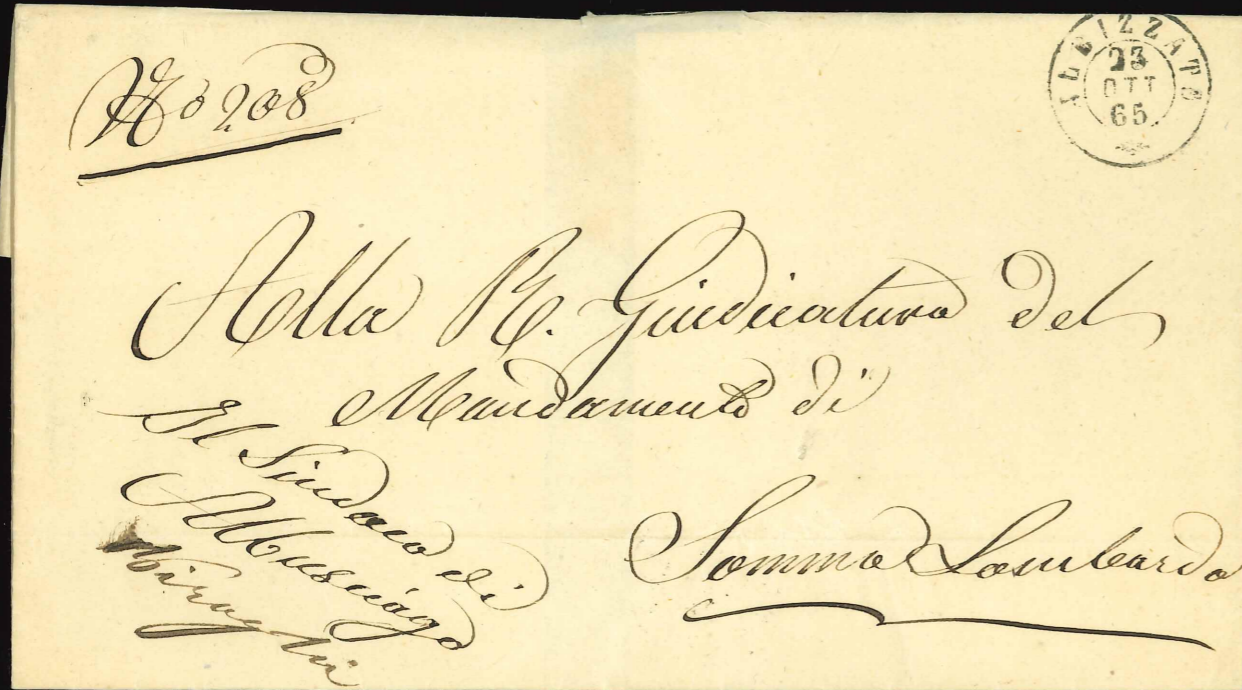 No 208
ALBIZZATO
23
OTT
65
Alla R. Giudicatura del
Mandamento di
Somma Lombardo
Il Sindaco di
Albusciago